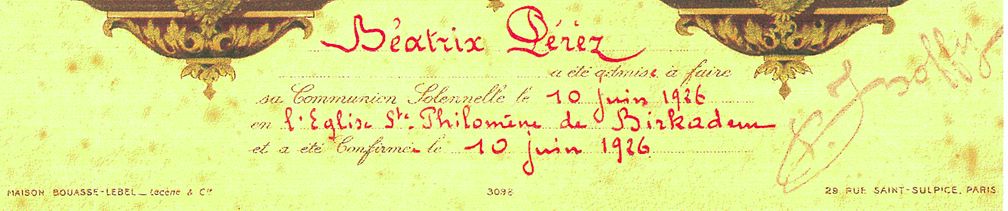 Béatrix Pérèz
a été admise à faire
sa Communion Solennelle le 10 juin 1926
en l'Eglise Ste Philomène de Birkadem
et a été Confirmée le 10 juin 1926
MAISON BOUASSE-LEBEL _ Lecène & Cie 3098 29 RUE SAINT-SULPICE, PARIS